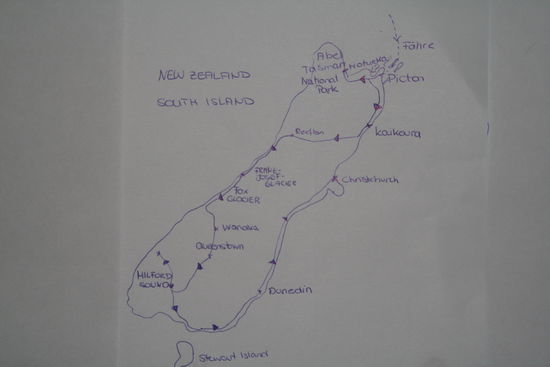 Fähre
Abel
Tasman
National
Park
Motueka
Picton
NEW ZEALAND
SOUTH ISLAND
Kaikoura
Reefton
FRANZ-
JOSEF-
GLACIER
Christchurch
FOX
GLACIER
Wanaka
Queenstown
MILFORD
SOUND
Dunedin
Stewart Island